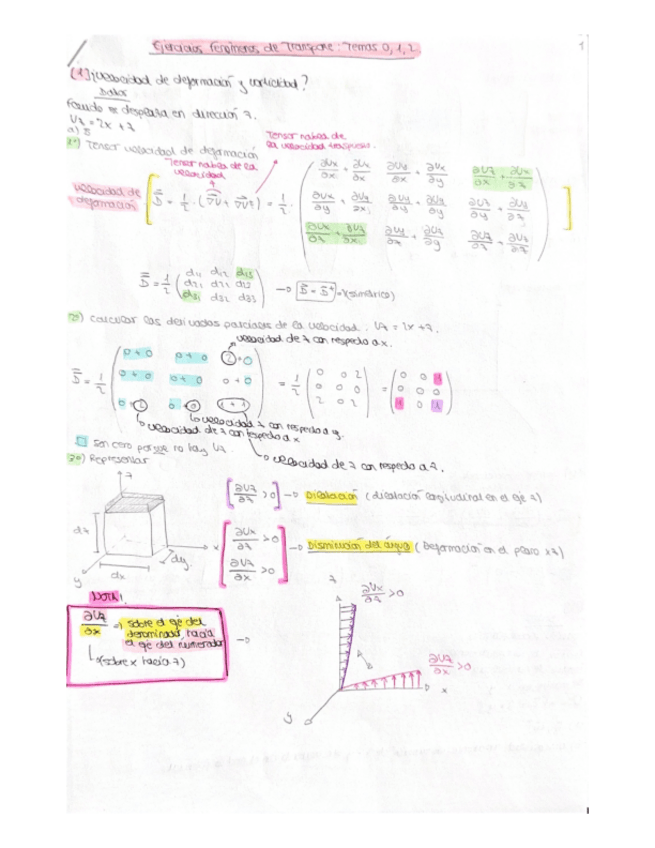 Ejercicios Fenómenos de Transporte: Temas 0, 1, 2
1
(1) ¿velocidad de deformación y vorticidad?
Datos
Vz = 2x + z
a) D̿
1º) Tensor velocidad de deformación
Tensor nabla de la velocidad transpuesto.
Tensor nabla de la velocidad
velocidad de deformación
D̿ = 1/2 · (∇V + ∇V^T) = 1/2 ·
∂Vx/∂x + ∂Vx/∂x ∂Vy/∂x + ∂Vx/∂y ∂Vz/∂x + ∂Vx/∂z
∂Vx/∂y + ∂Vy/∂x ∂Vy/∂y + ∂Vy/∂y ∂Vz/∂y + ∂Vy/∂z
∂Vx/∂z + ∂Vz/∂x ∂Vy/∂z + ∂Vz/∂y ∂Vz/∂z + ∂Vz/∂z
d11 d12 d13
D̿ = 1/2 d21 d22 d23 → D̿ = D̿+ (simétrico)
d31 d32 d33
2º) calcular las derivadas parciales de la velocidad: Vz = 2x + z.
velocidad de z con respecto a x.
0 + 0 0 + 0 2 + 0
D̿ = 1/2 0 + 0 0 + 0 0 + 0 = 1/2 (0 0 2 / 0 0 0 / 2 0 2) = (0 0 1 / 0 0 0 / 1 0 1)
0 + 2 0 + 0 1 + 1
velocidad z con respecto a y.
velocidad de z con respecto a x
velocidad de z con respecto a z.
Son cero porque no hay
3º) Representar
z
[∂Vz/∂z > 0] → Dilatación (dilatación longitudinal en el eje z)
dz
x
dy
dx
y
∂Vx/∂z > 0
∂Vz/∂x > 0
→ Disminución del ángulo (Deformación en el plano xz)
NOTA!
∂Vz/∂x ⇒ sobre el eje del denominador, hacia el eje del numerador
(sobre x hacia z)
z
∂Vx/∂z > 0
∂Vz/∂x > 0
x
y